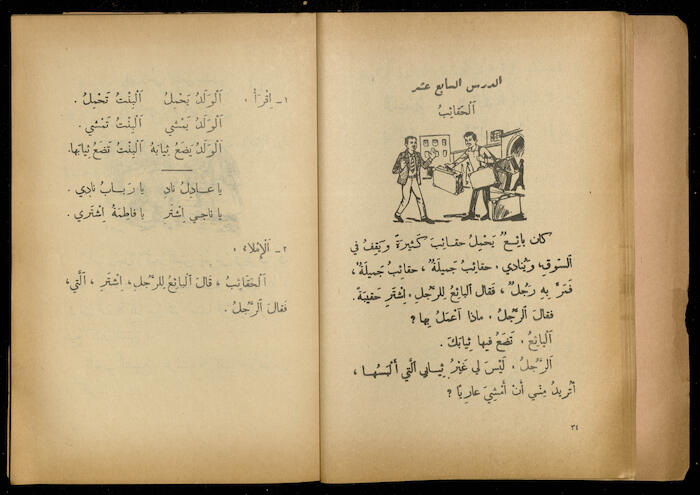 الدرس السابع عشر
اَلْحَقائِبُ
كانَ بائِعٌ يَحْمِلُ حقائِبَ كَثيرَةً وَيَقِفُ في
اَلسّوقِ، وَيُنادي، حقائِبُ جَميلَةٌ، حَقائِبُ جَميلَةٌ،
فَمَرَّ بِهِ رَجُلٌ، فَقالَ اَلْبائِعُ لِلرَّجُلِ، اِشْتَرِ حَقيبَةً.
فَقالَ اَلرَّجُلُ، ماذا أَعْمَلُ بِها؟
اَلْبائِعُ، تَضَعُ فيها ثِيابَكَ.
اَلرَّجُلُ، لَيْسَ لي غَيْرُ ثِيابي اَلَّتي أَلْبَسُها،
أَتُريدُ مِنّي أَنْ أَمْشِيَ عارِيًا؟
٣٤
١ـ اِقْرَأْ، اَلْوَلَدُ يَحْمِلُ اَلْبِنْتُ تَحْمِلُ.
اَلْوَلَدُ يَمْشي اَلْبِنْتُ تَمْشي.
اَلْوَلَدُ يَضَعُ ثِيابَهُ اَلْبِنْتُ تَضَعُ ثِيابَها.
يا عادِلُ نادِ يا رَبابُ نادي.
يا ناجي اِشْتَرِ يا فاطِمَةُ اِشْتَري.
٢ـ اَلْإِمْلاءُ
اَلْحَقائِبُ، قالَ اَلْبائِعُ لِلرَّجُلِ، اِشْتَرِ، اَلَّتي،
فَقالَ اَلرَّجُلُ.